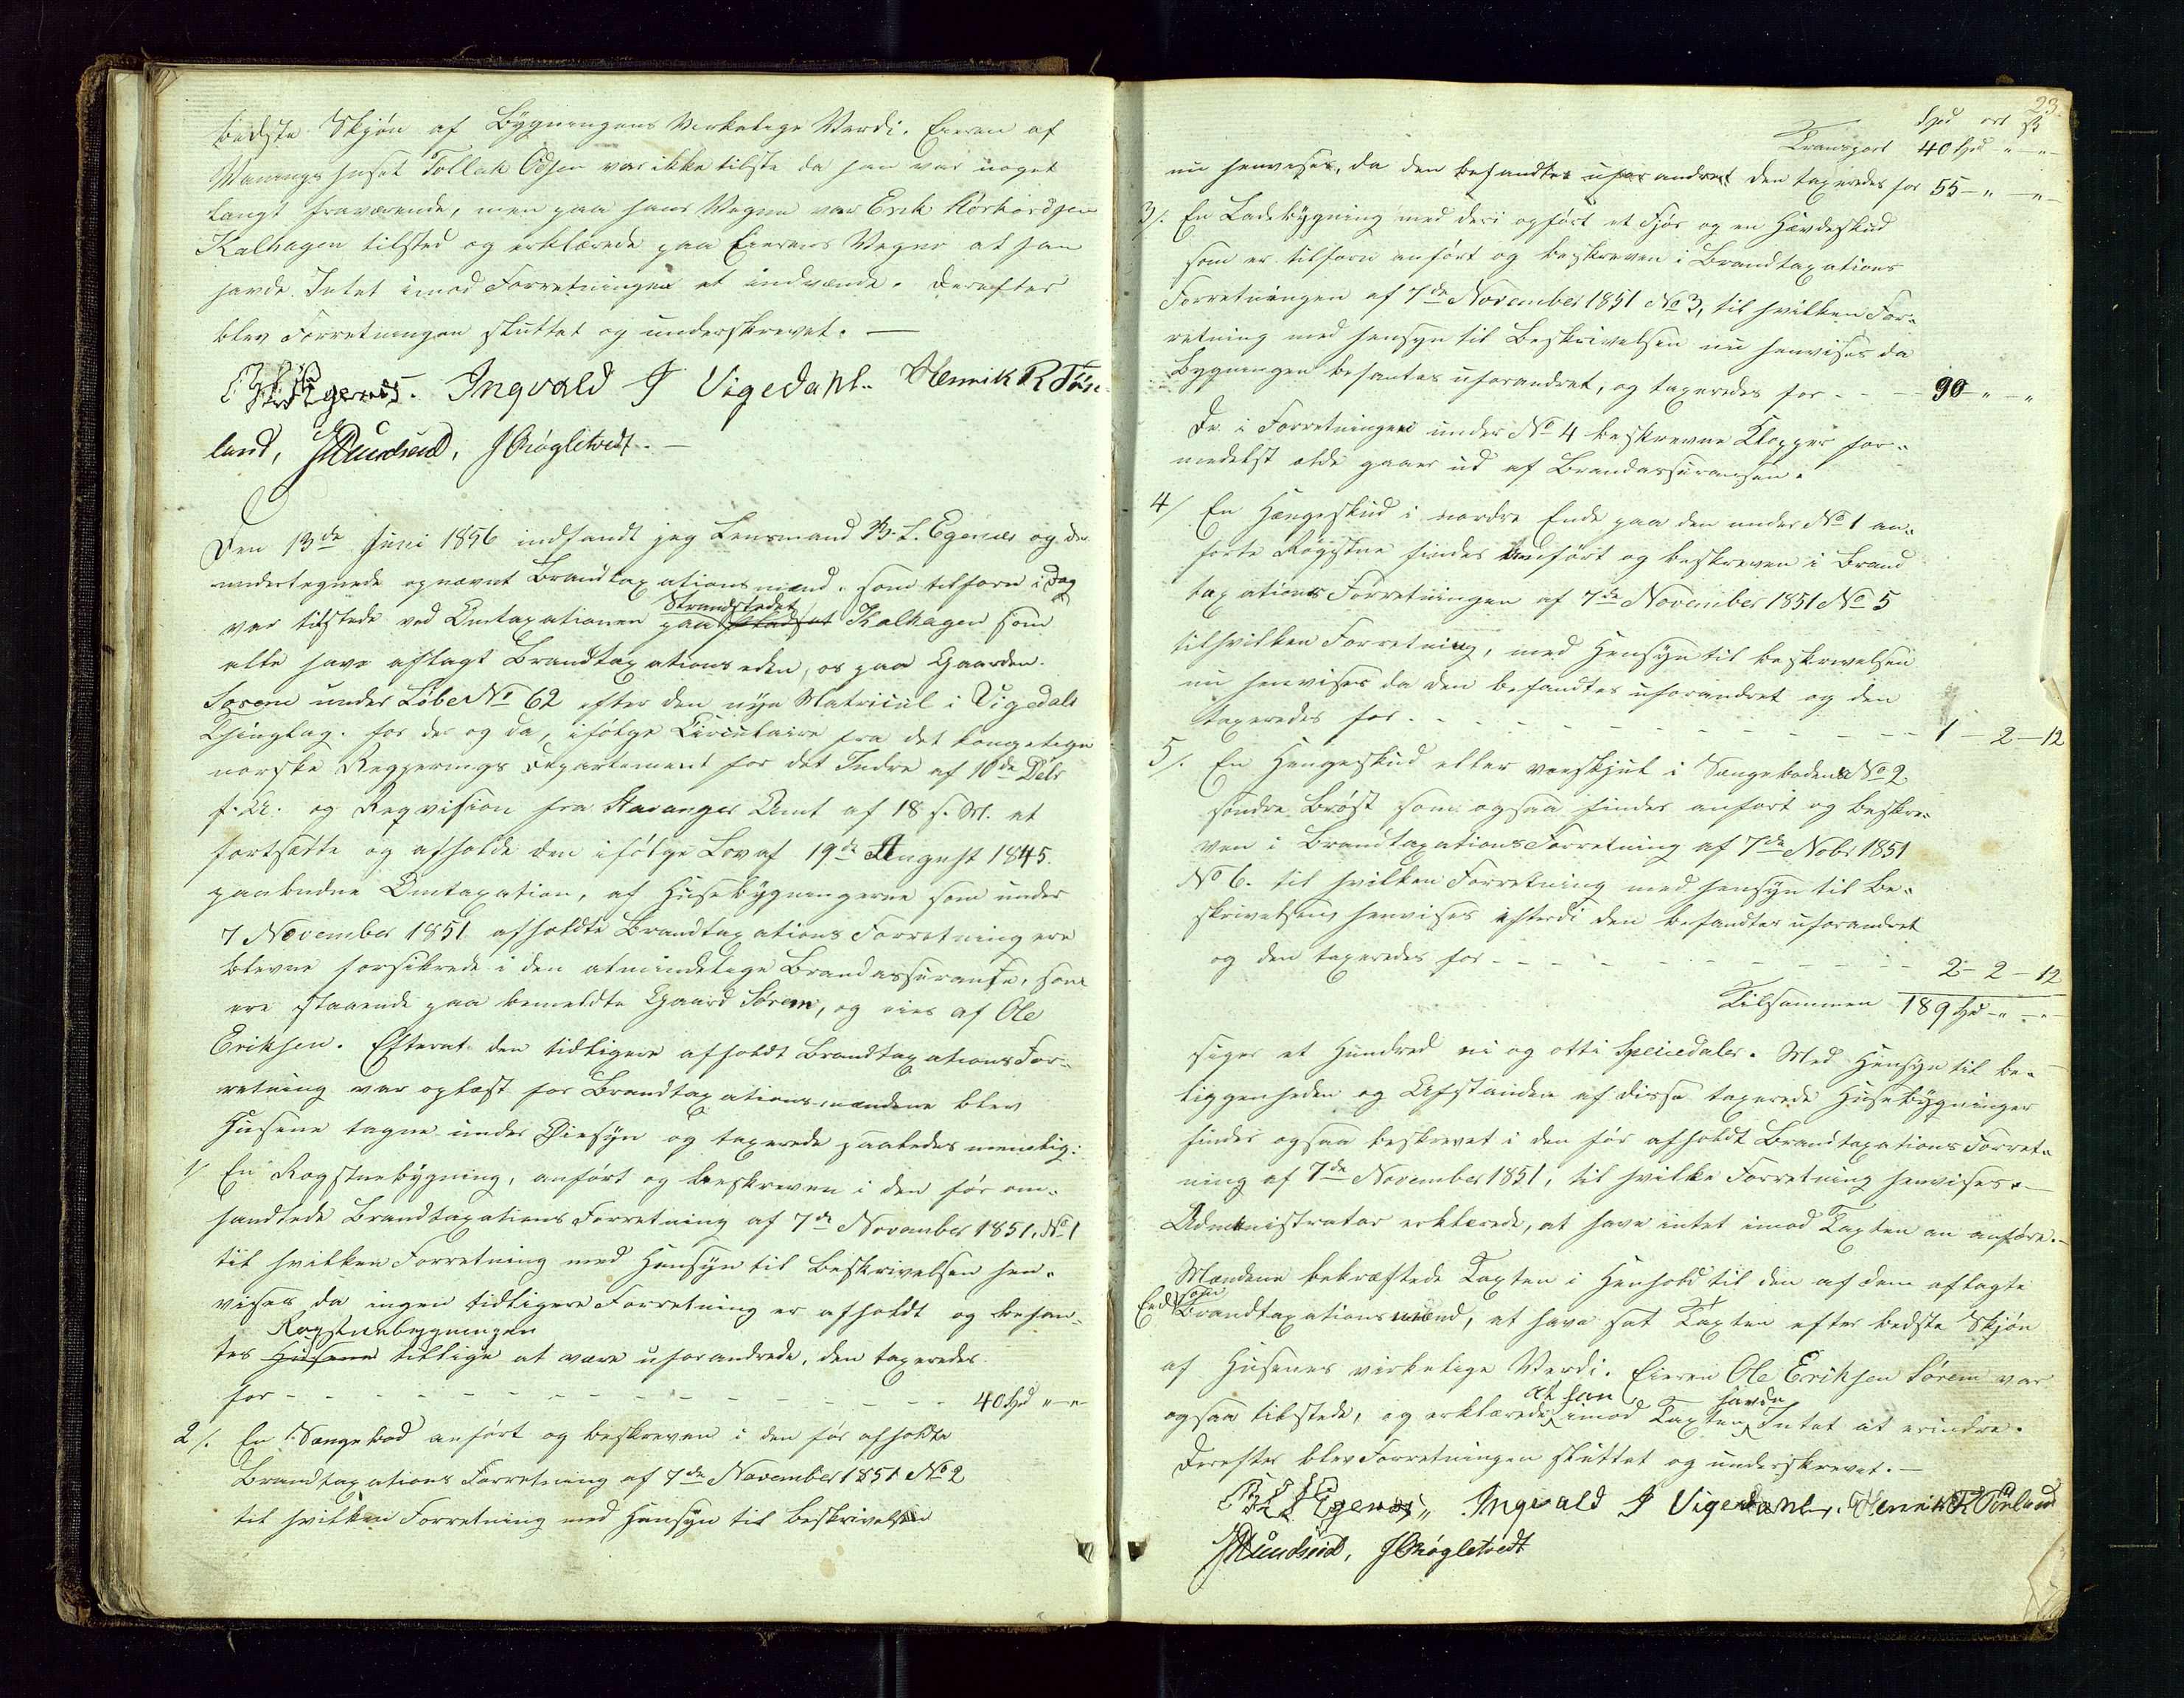 bedste Skjøn af Bygningens Verkelige Verdi. Eieren af
Vaaningshuset Tollak Odsen var ikke tilste da han var noget
langt fraværende, men paa hans Vegne var Erik Kalhagen
Kalhagen tilsted og erklærede paa Eierens Vegne at han
havde Intet imod Forretningen at indvende. Derefter
blev Forretningen sluttet og underskrevet. —
B L Egenæs. Ingvald J Vigedahl. Henrik R Tørre-
land, J Knudsend, J Krøgletvedt. —
Den 13de Juni 1856 indfandt jeg Lensmand B. L. Egenæs og de
undertegnede opnævnt Brandtaxationsmænd, som tilforn i Dag
var tilstede ved Omtaxationen paa Strandstedet Kalhagen som
alle have aflagt Brandtaxationseden, os paa Gaarden
Sørem under Løbe No 62 efter den nye Matricul i Vigedals
Thinglag. for der og da, ifølge Circulaire fra det kongelige
norske Regjerings Departement for det Indre af 10de Debr
f. A. og Reqvisition fra Stavanger Amt af 18 s. M. at
fortsætte og afholde den ifølge Lov af 19de August 1845.
paabudne Omtaxation, af Husebygningerne som under
7 November 1851 afholdte Brandtaxations Forretning ere
blevne forsikrede i den almindelige Brandassurance, som
ere staaende paa bemeldte Gaard Sørem, og eies af Ole
Eriksen. Efterat den tidligere afholdt Brandtaxations For-
retning var oplæst for Brandtaxationsmændene blev
Husene tagne under Øiesyn og taxerede saaledes nemlig:
1/ En Røgstuebygning, anført og beskreven i den før om-
handlede Brandtaxations Forretning af 7de November 1851, No 1
til hvilken Forretning med Hensyn til Beskrivelsen hen-
vises, da ingen tidligere Forretning er afholdt og befan-
Røgstuebygningen
tes Husene tillige at være uforandrede, den taxeredes
for - - - - - - - - - - - - - - - 40 Spd " — "
2/. En Sængebod anført og beskreven i den før afholdte
Brandtaxations Forretning af 7de November 1851 No 2
til hvilken Forretning med Hensyn til Beskrivelsen
23.
Spd ort ß
Transport 40 Spd " — " —
nu henvises, da den befandtes uforandret den taxeredes for 55 — " — " —
3/. En Ladebygning med deri opført et Fjøs og en Hævdeskud
som er tilforn anført og beskreven i Brandtaxations
Forretningen af 7de November 1851 No 3, til hvilken For-
retning med Hensyn til Beskrivelsen nu henvises da
Bygningen befantes uforandret, og taxeredes for - - - 90 — " — "
De i Forretningen under No 4 beskrevne Klopper for-
medelst ælde gaaer ud af Brandassurancen.
4/ En Hængeskud i nordre Ende paa den under No 1 an-
førte Røgstue findes anført og beskreven i Brand
taxations Forretningen af 7de November 1851 No 5
til hvilken Forretning, med Hensyn til beskrivelsen
nu henvises da den befandtes uforandret og den
taxeredes for - - - - - - - - - - - - 1 — 2 — 12
5/. En Hengeskud eller vedskjul i Sængebodens No 2
søndre Brøst som ogsaa findes anført og beskre-
ven i Brandtaxations Forretning af 7de Nobr 1851
No 6. til hvilken Forretning med hensyn til Be-
skrivelsen, henvises efterdi den befandtes uforandret
og den taxeredes for - - - - - - - - - - 2 — 2 — 12
Tilsammen 189 Spd — " — " —
siger et Hundred ni og otti Speciedaler. Med Hensyn til be-
liggenheden og Afstanden af disse taxerede Husebygninger
findes ogsaa beskrevet i den før afholdt Brandtaxations Forret-
ning af 7de November 1851, til hvilke Forretning henvises. —
Administrator erklærede, at have intet imod Taxten an anføre. —
Mændene bekræftede Taxten i Henhold til den af dem aflagte
Eed som Brandtaxationsmænd, at have sat Taxten efter bedste Skjøn
af Husenes virkelige Verdi. Eieren Ole Eriksen Sørem var
ogsaa tilstede, og erklærede at han imod Taxten havde Intet at erindre.
Derefter blev Forretningen sluttet og underskrevet. —
B L Egenæs, Ingvald J Vigedahl. Henrik R Tørreland
J Knudsend, J Krøgletvedt